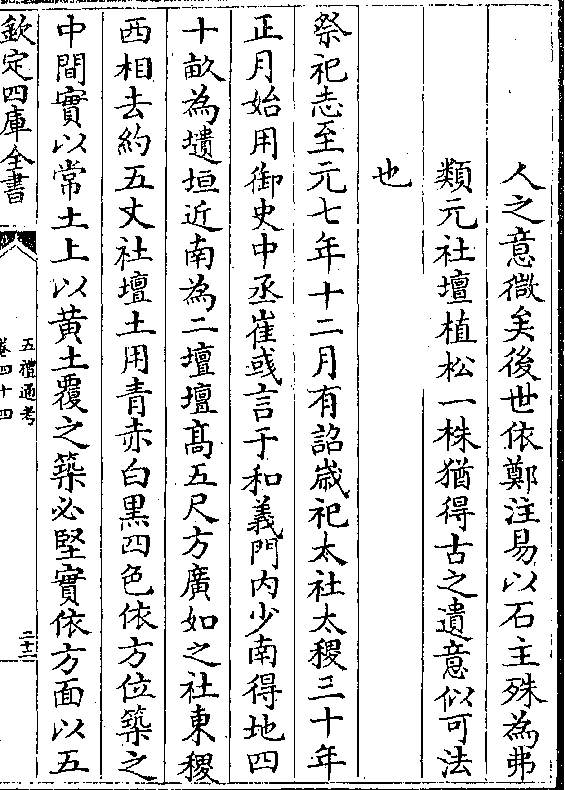 人之意微矣後世依鄭注易以石主殊為弗
類元社壇植松一株猶得古之遺意似可法
也
祭祀志至元七年十二月有詔歲祀太社太稷三十年
正月始用御史中丞崔彧言于和義門内少南得地四
十畝為壝垣近南為二壇壇髙五尺方廣如之社東稷
西相去約五丈社壇土用青赤白黑四色依方位築之
中間實以常土上以黃土覆之築必堅實依方面以五
欽定四庫全書
五禮通考
卷四十四
二十三